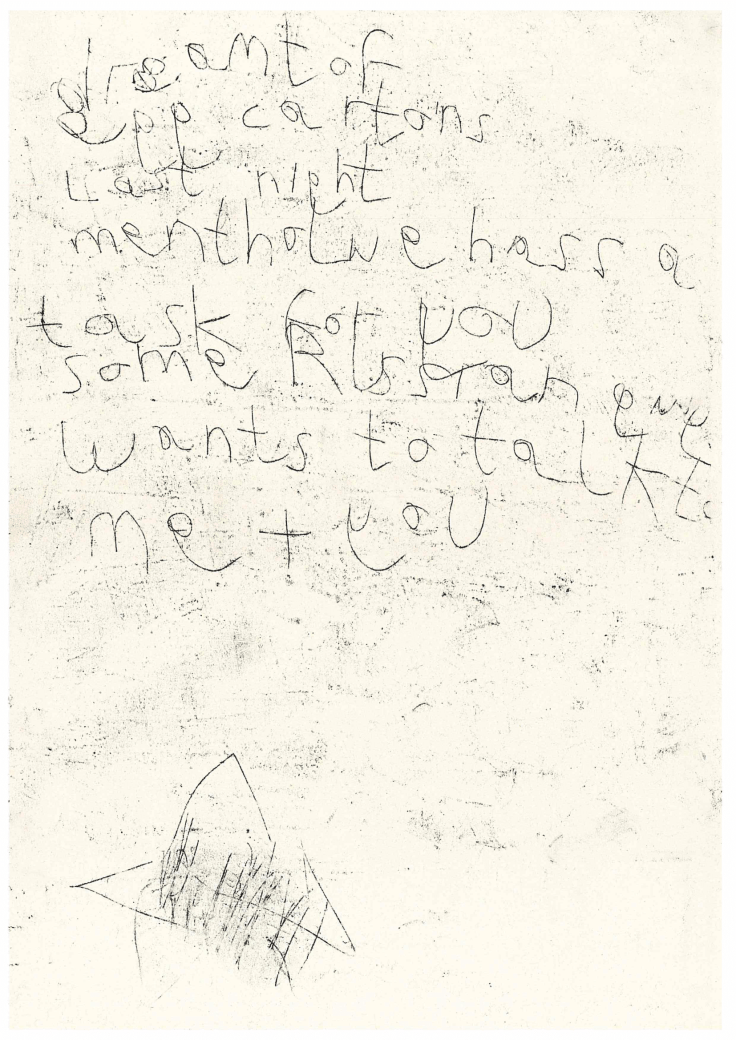 dreamt of
egg cartons
Last night
mentholwe hass a
task for you
some Russian guy
wants to talk to
me + you